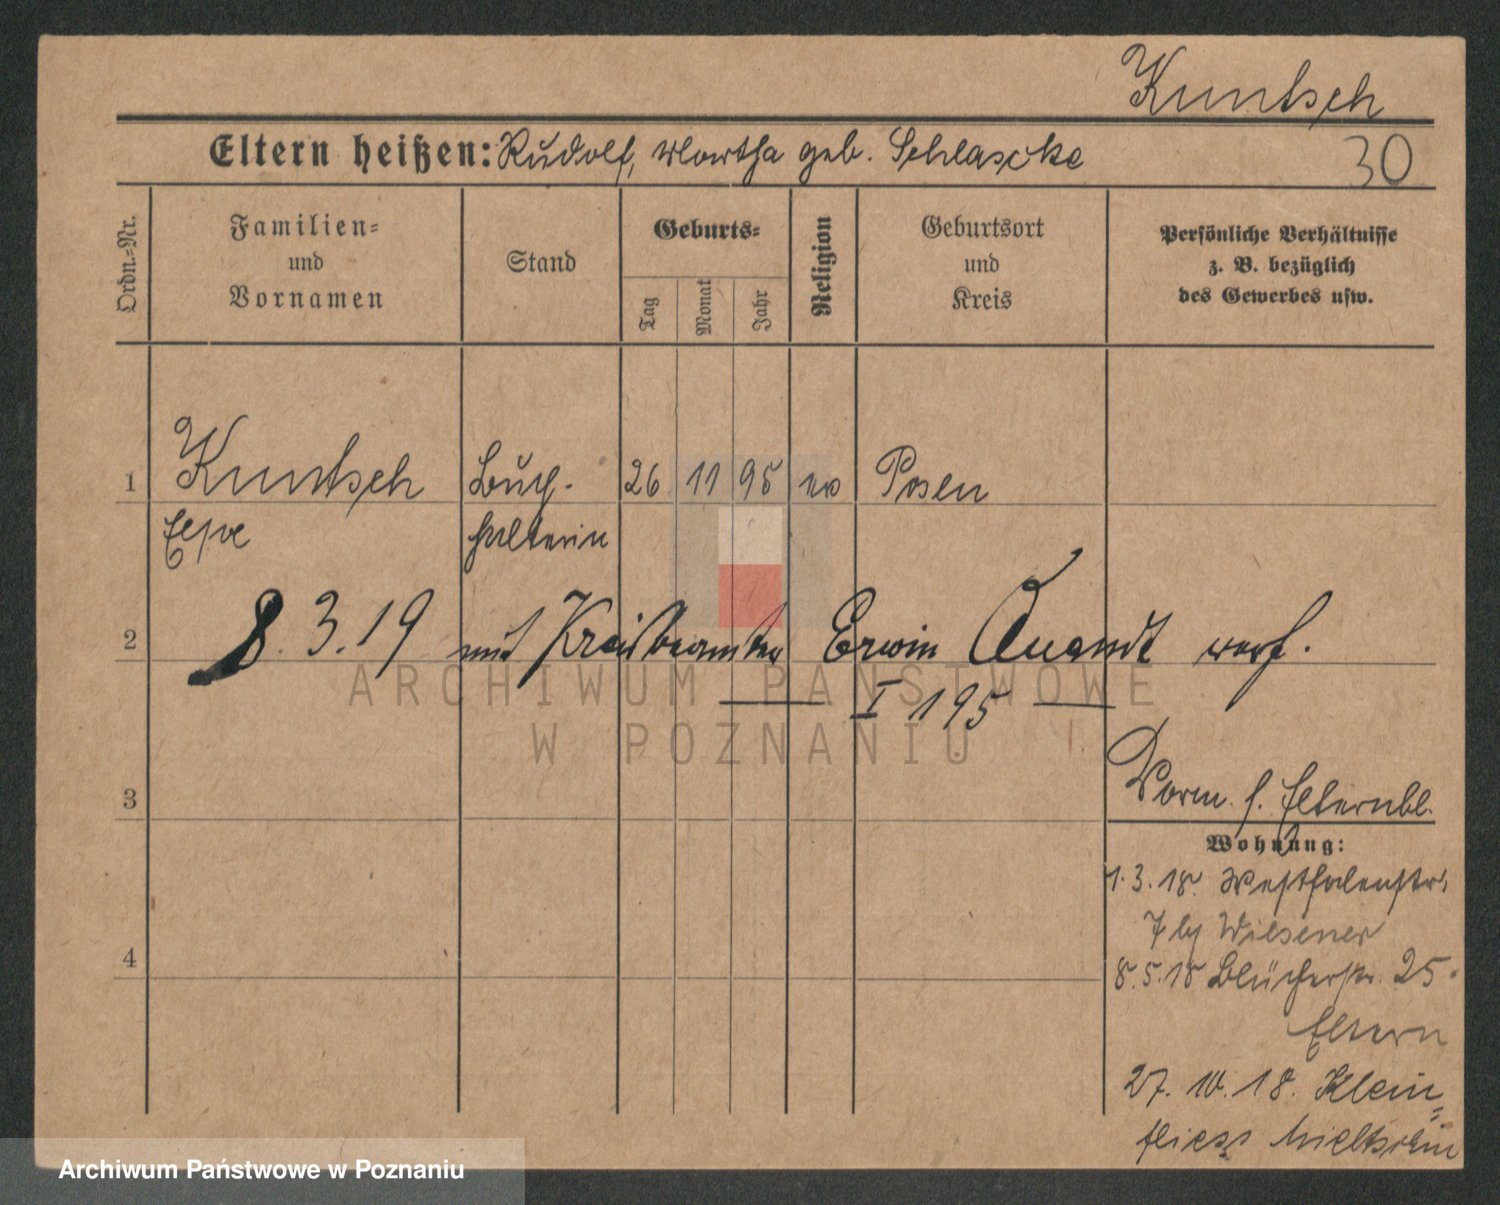 Kuntsch
Eltern heißen: Rudolf, Martha geb. Schlascke
30
Ordn.-Nr.
Familien-
und
Vornamen
Stand
Geburts-
Tag
Monat
Jahr
Religion
Geburtsort
und
Kreis
Persönliche Verhältnisse
z. B. bezüglich
des Gewerbes usw.
1 Kuntsch Buch- 26 11 95 ev Posen
Else halterin
2 8.3.19 mit Kreisbeamter Erwin verh.
I 195
ARCHIWUM PAŃSTWOWE
W POZNANIU
3
Vorm. s. Elternbl.
Wohnung:
1.3.18. Westfalenstr.
7 by Wiesener
4
8.5.18 Blücherstr. 25.
Eltern
27. 10. 18. Klein
Archiwum Państwowe w Poznaniu